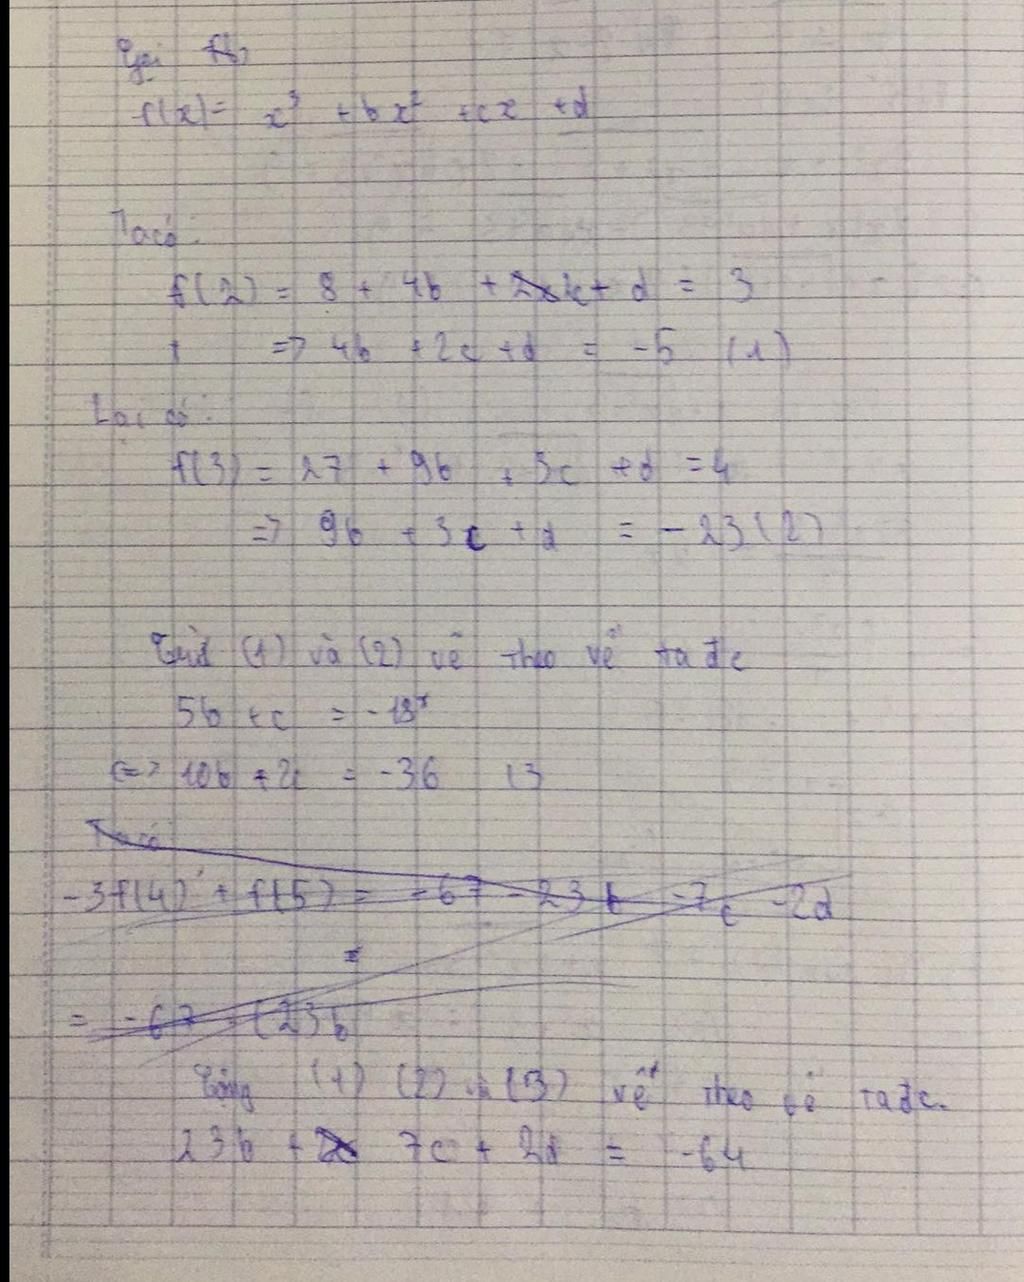 Gọi f(x)
f(x) = x³ + bx² + cx + d
Ta có:
f(2) = 8 + 4b + 2c + d = 3
=> 4b + 2c + d = -5 (1)
Lại có:
f(3) = 27 + 9b + 3c + d = 4
=> 9b + 3c + d = -23 (2)
(1) và (2) vế theo vế ta đc
5b + c = -18
<=> 10b + 2c = -36 (3
Ta có
-3f(4) + f(5) = -67 - 23b - 7c - 2d
= -67 - (23b
Cộng (1) (2) và (3) vế theo vế ta đc.
23b + 7c + 2d = -64